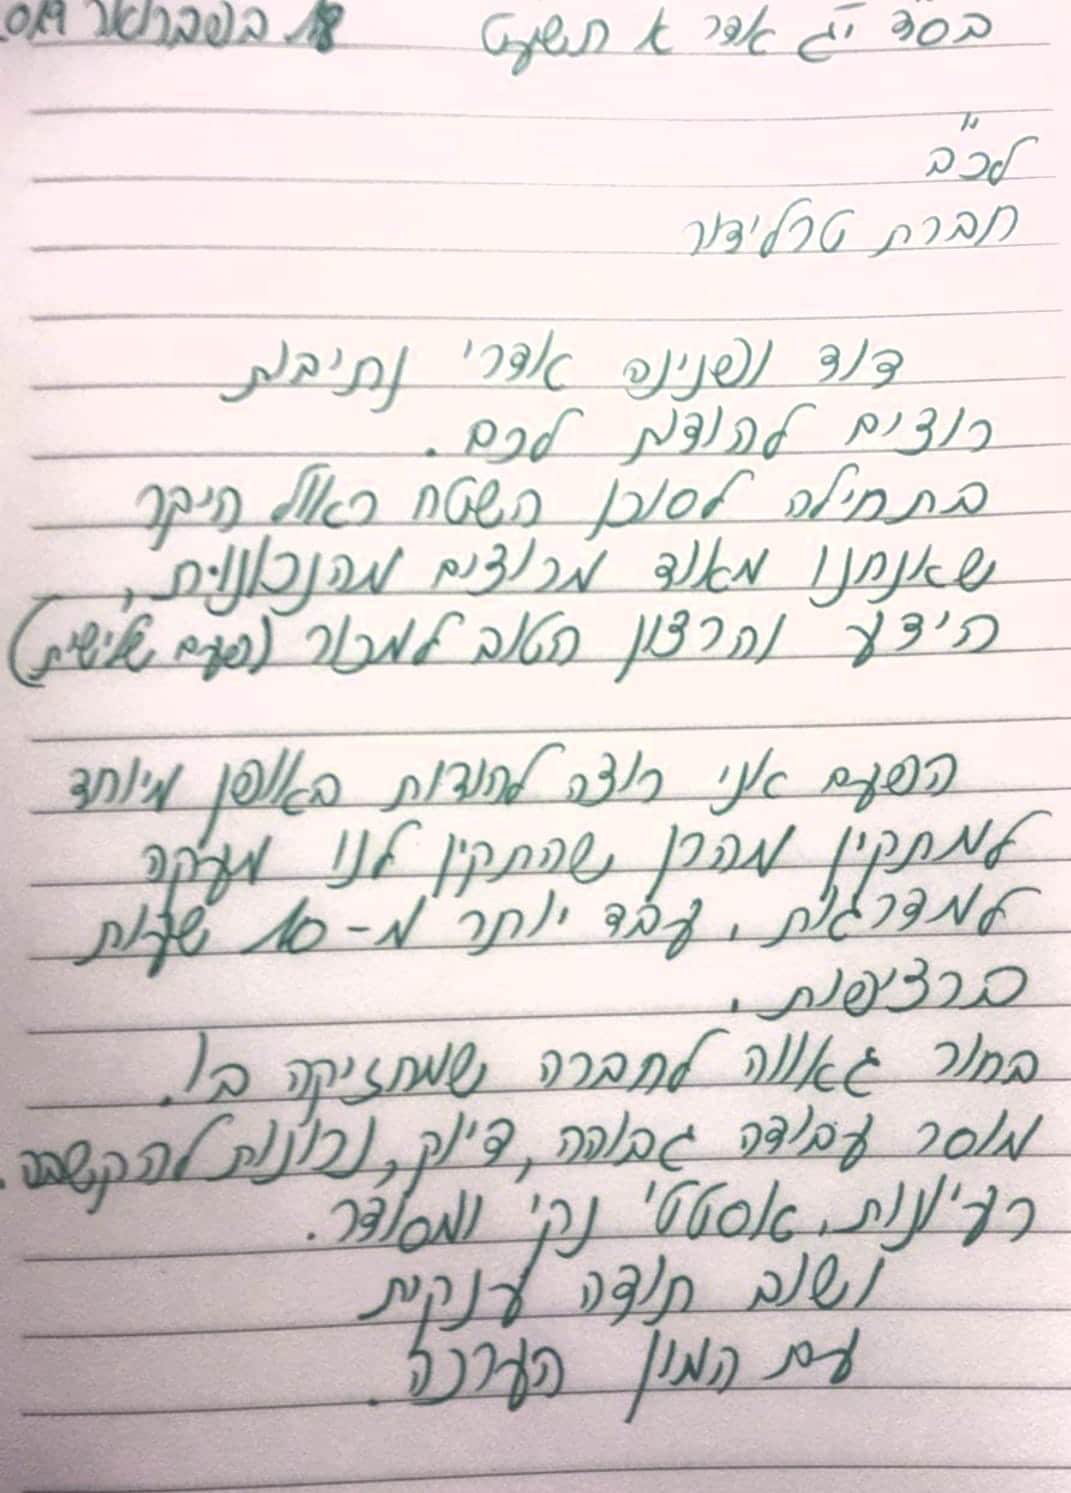 בסד יג אדר א תשעט 18 בפברואר
לכ"ב
חברת טרלידור
דוד ופנינה אדרי נתיבות
רוצים להודות לכם.
בתחילה לסוכן השטח ראול היקר
שאנחנו מאוד מרוצים מהנכונות,
הידע והרצון הטוב למכור (פעם שלישית)
הפעם אני רוצה להודות באופן מיוחד
למתקין מהרן שהתקין לנו מעקה
למדרגות, עבד יותר מ-10 שעות
ברציפות,
בחור גאווה לחברה שמחזיקה בו.
מוסר עבודה גבוהה, דיוק, נכונות להקשבה.
רעיונות, אסטטי נקי ומסודר.
ושוב תודה ענקית
עם המון הערכה.